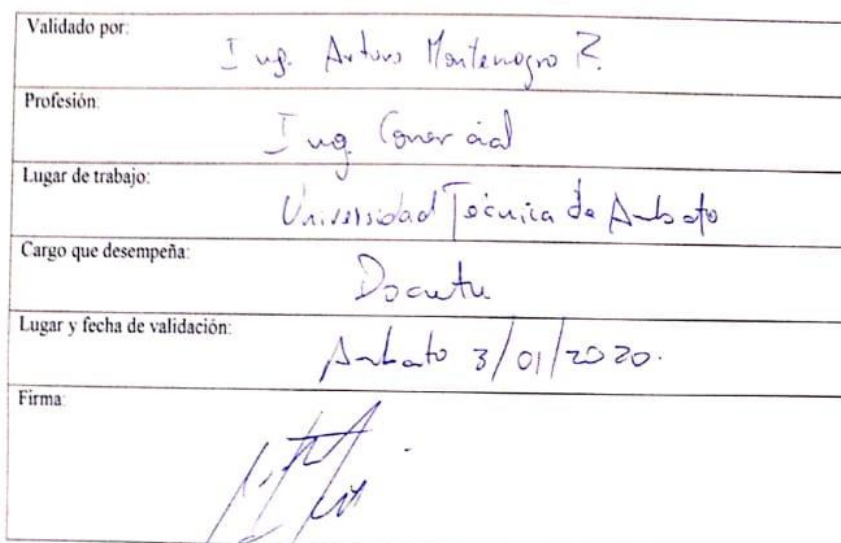 Validado por:
Ing. Arturo Montenegro R.
Profesión:
Ing. Comercial
Lugar de trabajo:
Universidad Técnica de Ambato
Cargo que desempeña:
Docente
Lugar y fecha de validación:
Ambato 3/01/2020.
Firma: